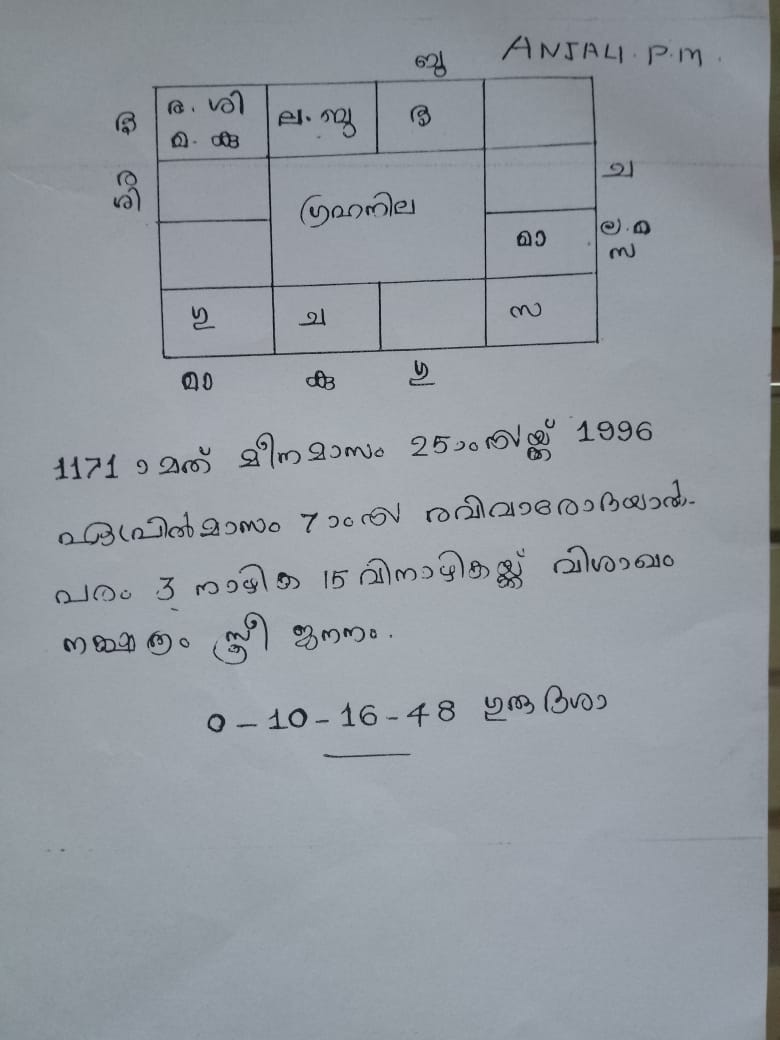 ബു ANJALI. P.M.
ര. ശി ല. ബു
മ. കു
ര ച
ശി
ഗ്രഹനില
മാ ല. മ
സ
ഗു ച സ
മാ കു ഗു
1171 ാമത് മീനമാസം 25ാംതിയ്യതി 1996
ഏപ്രിൽമാസം 7ാംതി രവിവാരോദയാൽ-
പരം 3 നാഴിക 15 വിനാഴികയ്ക്ക് വിശാഖം
നക്ഷത്രം സ്ത്രീ ജനനം.
0-10-16-48 ഗുരുദശാ